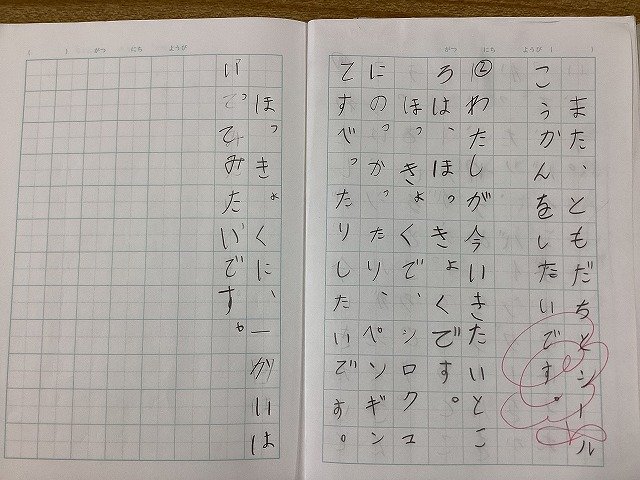 がつ にち ようび ( )
また、ともだちとシール
こうかんをしたいです。
②わたしが今いきたいとこ
ろは、ほっきょくです。
ほっきょくで、シロクマ
にのっかったり、ペンギン
てすべったりしたいです。
( ) がつ にち ようび
ほっきょくに、一かいは
いってみたいです。